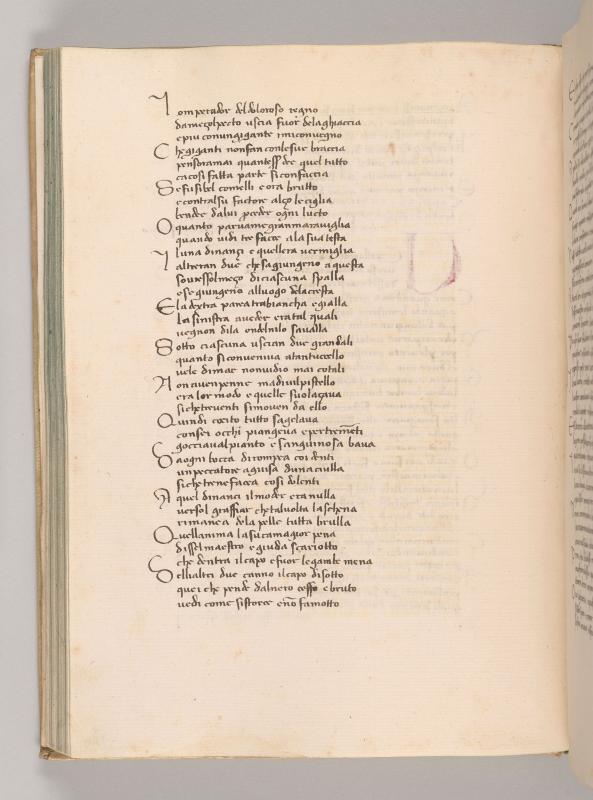 I omperador del doloroso regno
damezo lpecto uscia fuor dela ghiaccia
e piu con un gigante i mi convegno
C he giganti non fan con le sue braccia
pensora mai quantess dee quel tutto
ca cosi fatta parte si confaccia
S e fu si bel comelli e ora brutto
e contral su factore alzo le ciglia
ben dee da lui proceder ogni lucto
O quanto parve a me gran maraviglia
quando vidi tre facce a la sua testa
I luna dinanzi e quellera vermiglia
l altreran due che sagiungeno a questa
sovresso lmezo di ciascuna spalla
e se giungeno al luogo dela cresta
E la dextra parea tra biancha e gialla
la sinistra a veder era tal quali
vegnon di la onde lnilo savalla
S otto ciascuna uscian due grandali
quanto si convenia a tanto uccello
vele di mar non vidio mai cotali
N on avien penne ma di vilpistello
era lor modo e quelle suolazava
si che tre venti si movien da ello
Q uindi cocito tutto sagelava
con sei occhi piangeva e per tre menti
gocciaval pianto e sanguinosa bava
D a ogni bocca dirompea coi denti
un peccatore a guisa duna ciulla
si che tre ne facea cosi dolenti
A quel dinanci il morder era nulla
verso l graffiar che talvolta la schena
rimanea dela pelle tutta brulla
Q uellanima la su ca magior pena
disse l maestro e giuda scariotto
che dentra il capo e fuor le gambe mena
D elli altri due canno il capo di sotto
quei che pende dal nero ceffo e bruto
vedi come si storce e no fa motto